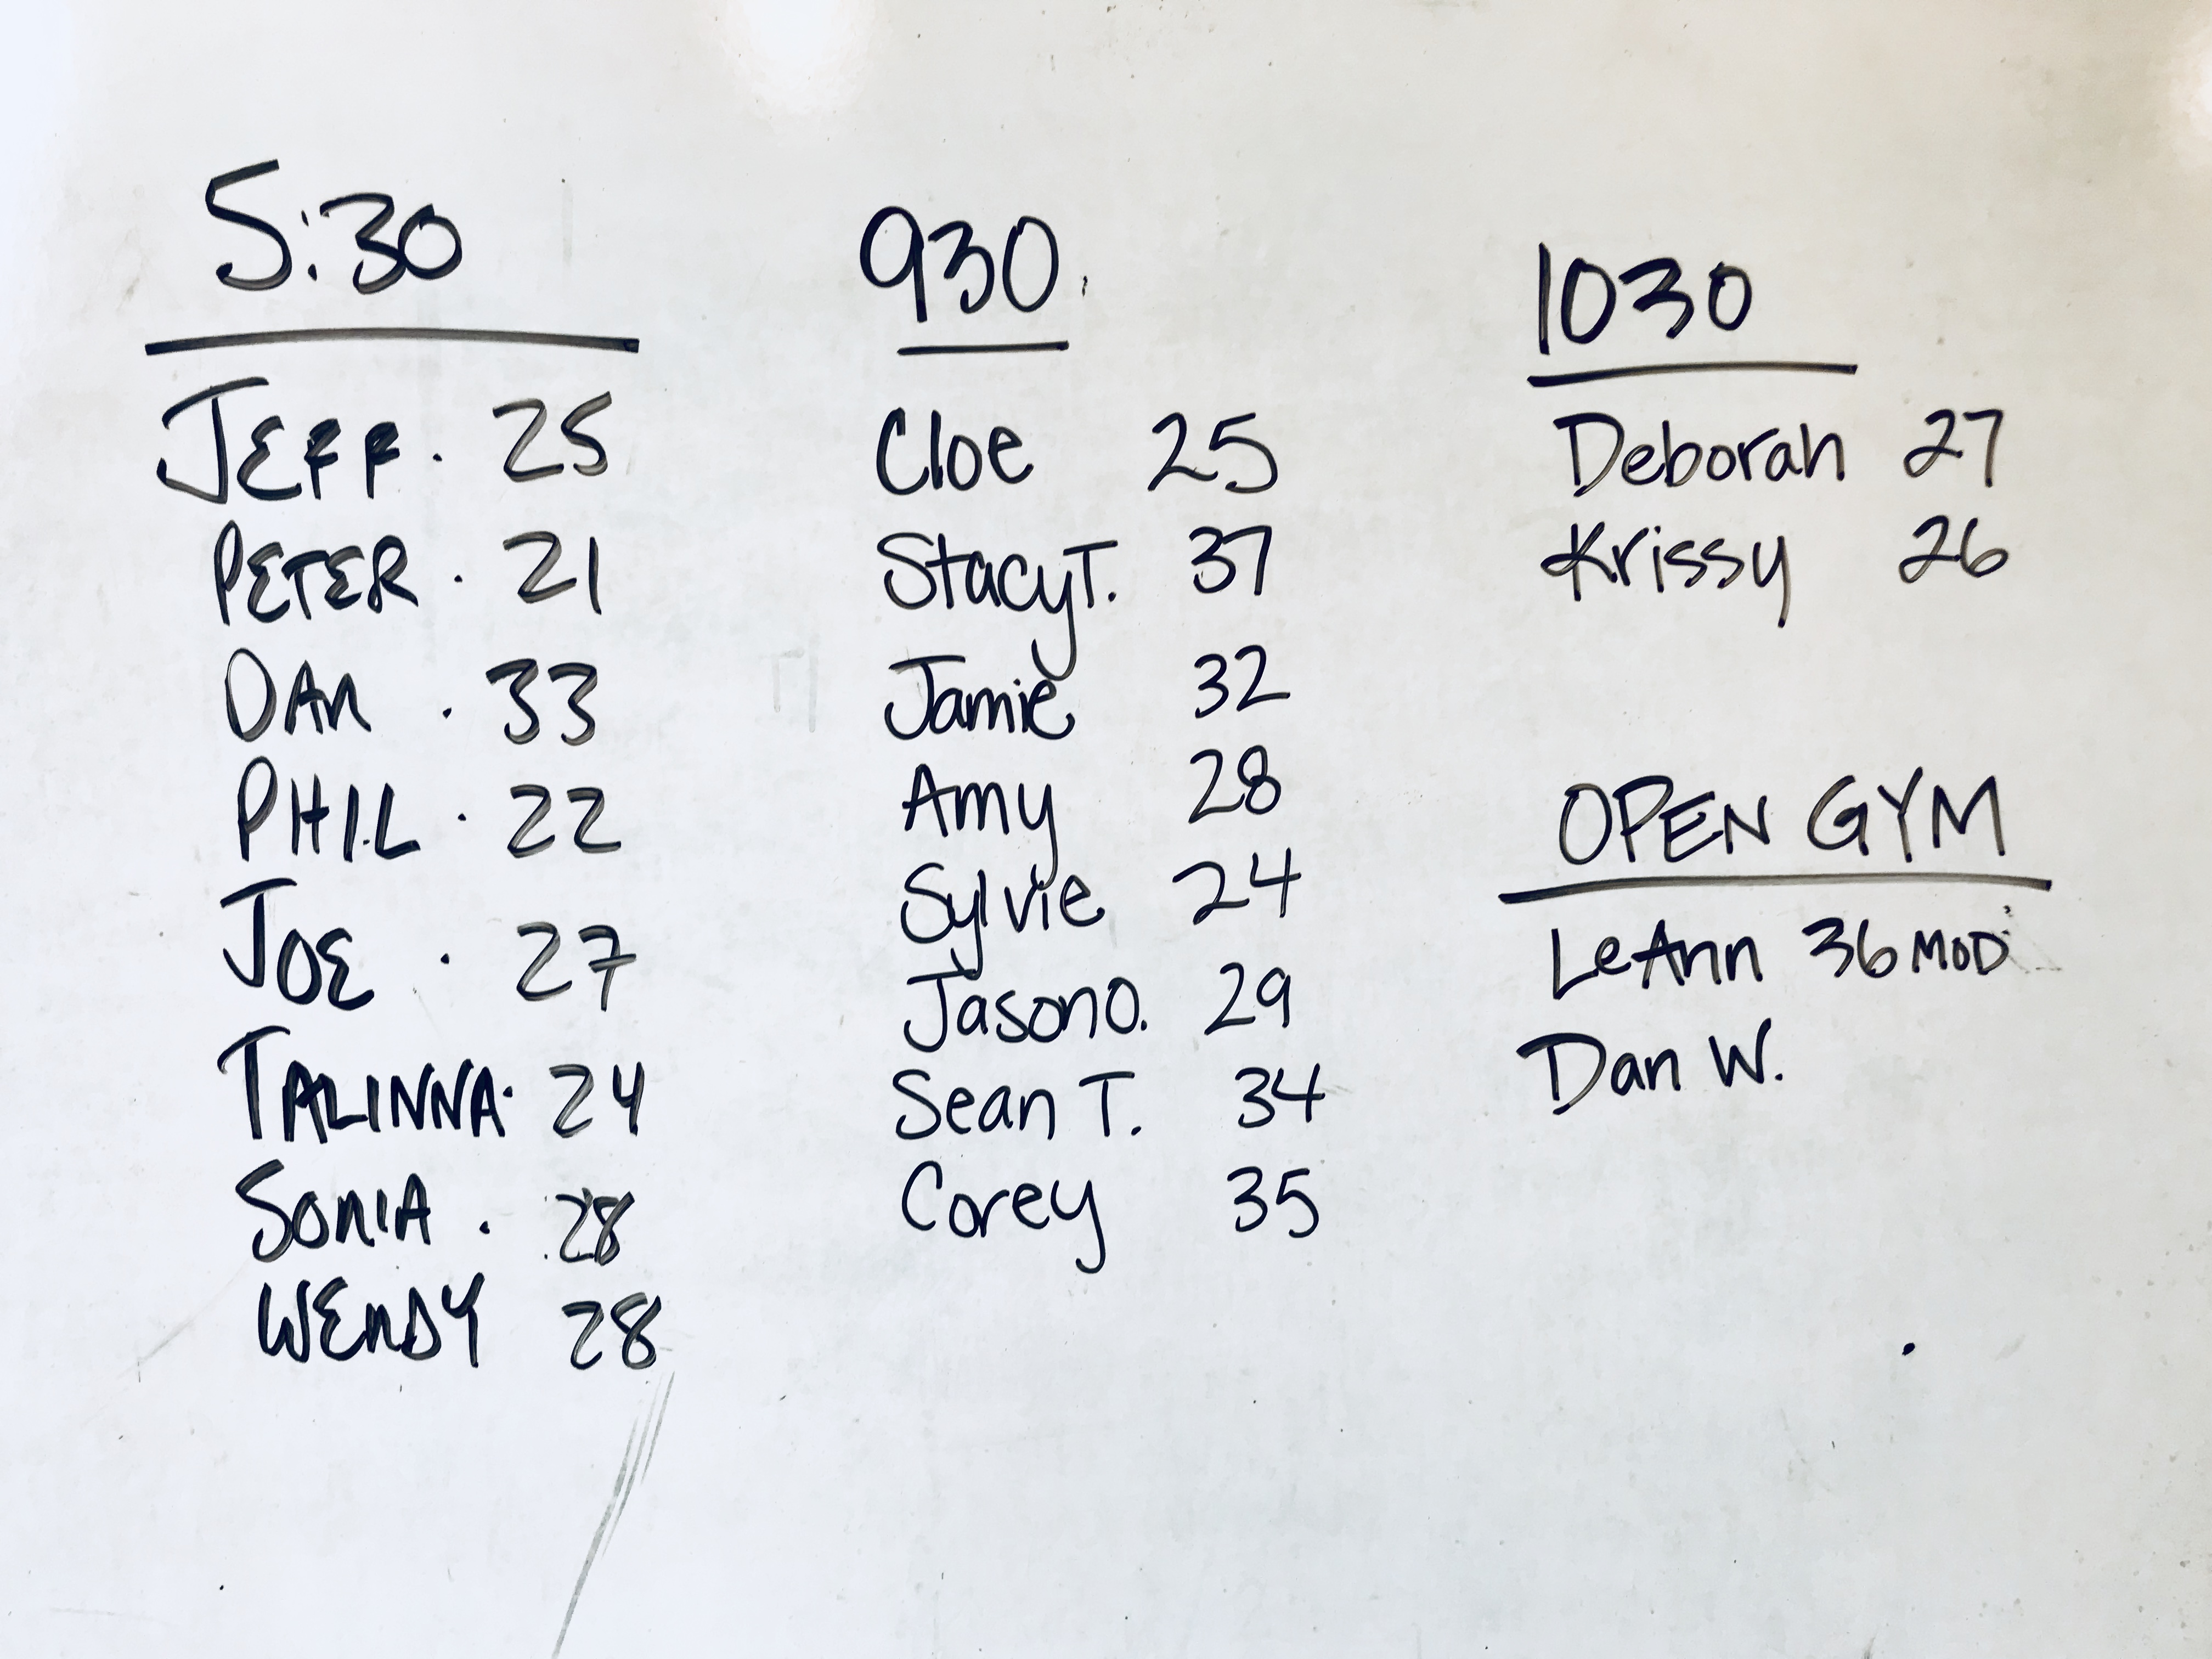 5:30
JEFF. 25
PETER. 21
DAN . 33
PHIL . 22
JOE . 27
TALINNA. 24
SONIA . 28
WENDY 28
930.
Cloe 25
Stacy T. 37
Jamie 32
Amy 28
Sylvie 24
Jason O. 29
Sean T. 34
Corey 35
1030
Deborah 27
Krissy 26
OPEN GYM
LeAnn 36 MOD
Dan W.